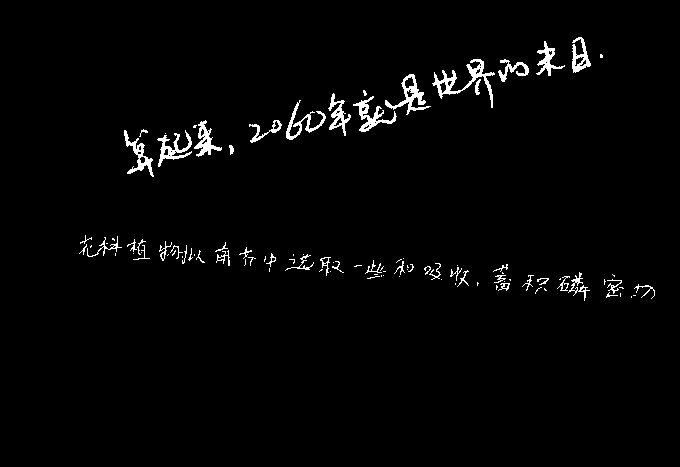 算起来,2060年就是世界的末日.
花科植物拟南芥中选取一些和吸收,蓄积磷密切